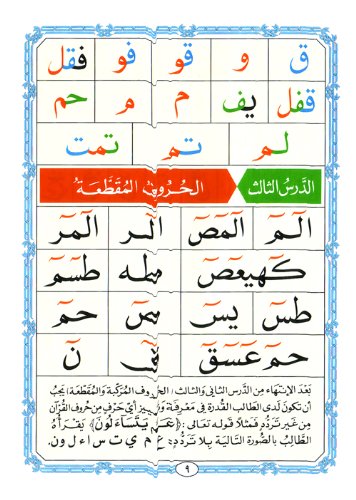 ق و قو فو فقل
قفل يف م م حم
لم تم تمت
الدَّرسُ الثالث الحُروفُ المُقَطَّعَة
الٓمٓ الٓمٓصٓ الٓر الٓمٓر
كٓهيعٓصٓ طه طسٓمٓ
طسٓ يسٓ صٓ حمٓ
حمٓ عٓسٓقٓ قٓ نٓ
بَعْدَ الإنتهَاء مِن الدَّرسِ الثَاني وَالثَالث: (الحُروف المُركَبَة وَالمُقَطَّعَة) يَجِبُ
أن تكونَ لَدى الطَالب القُدرَة في مَعرفَة وَتمييز أيّ حَرفٍ مِن حُروف القُرآن
مِن غَير تَردُّدٍ فَمثَلاً قَوله تعَالى: ﴿عَمَّ يَتَسَاءَلُونَ﴾ يَقرأهُ
الطَّالِبُ بالصُّورَة التَاليَة بلا تَردُّدٍ: ع م ي ت س ا ء ل و ن.
٩